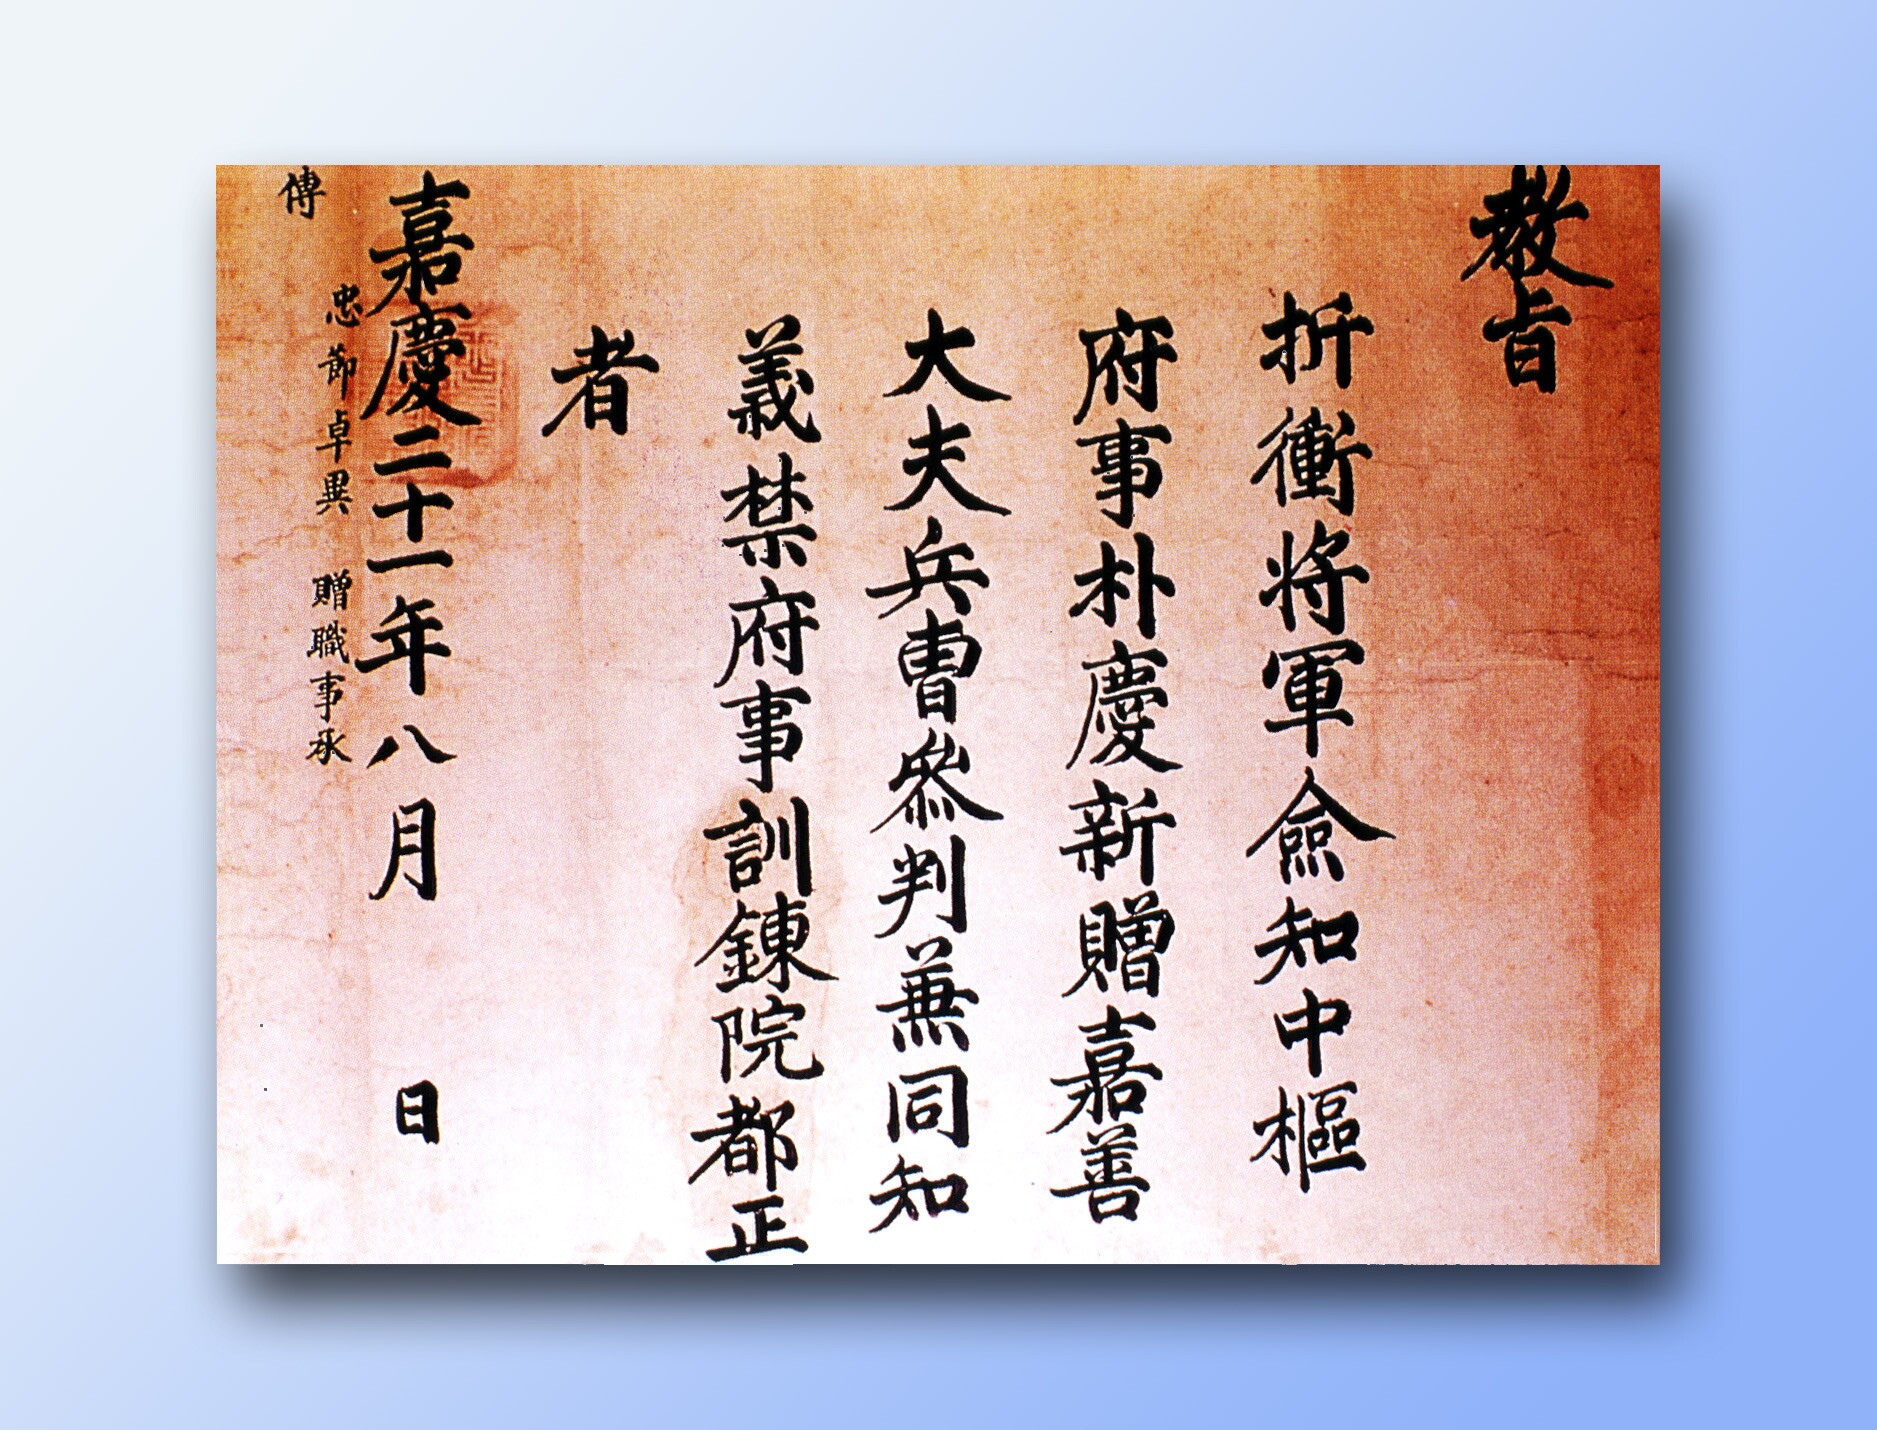 教旨
折衝將軍僉知中樞
府事朴慶新贈嘉善
大夫兵曹參判兼同知
義禁府事訓鍊院都正
者
嘉慶二十一年八月 日
忠節卓異 贈職事承
傳